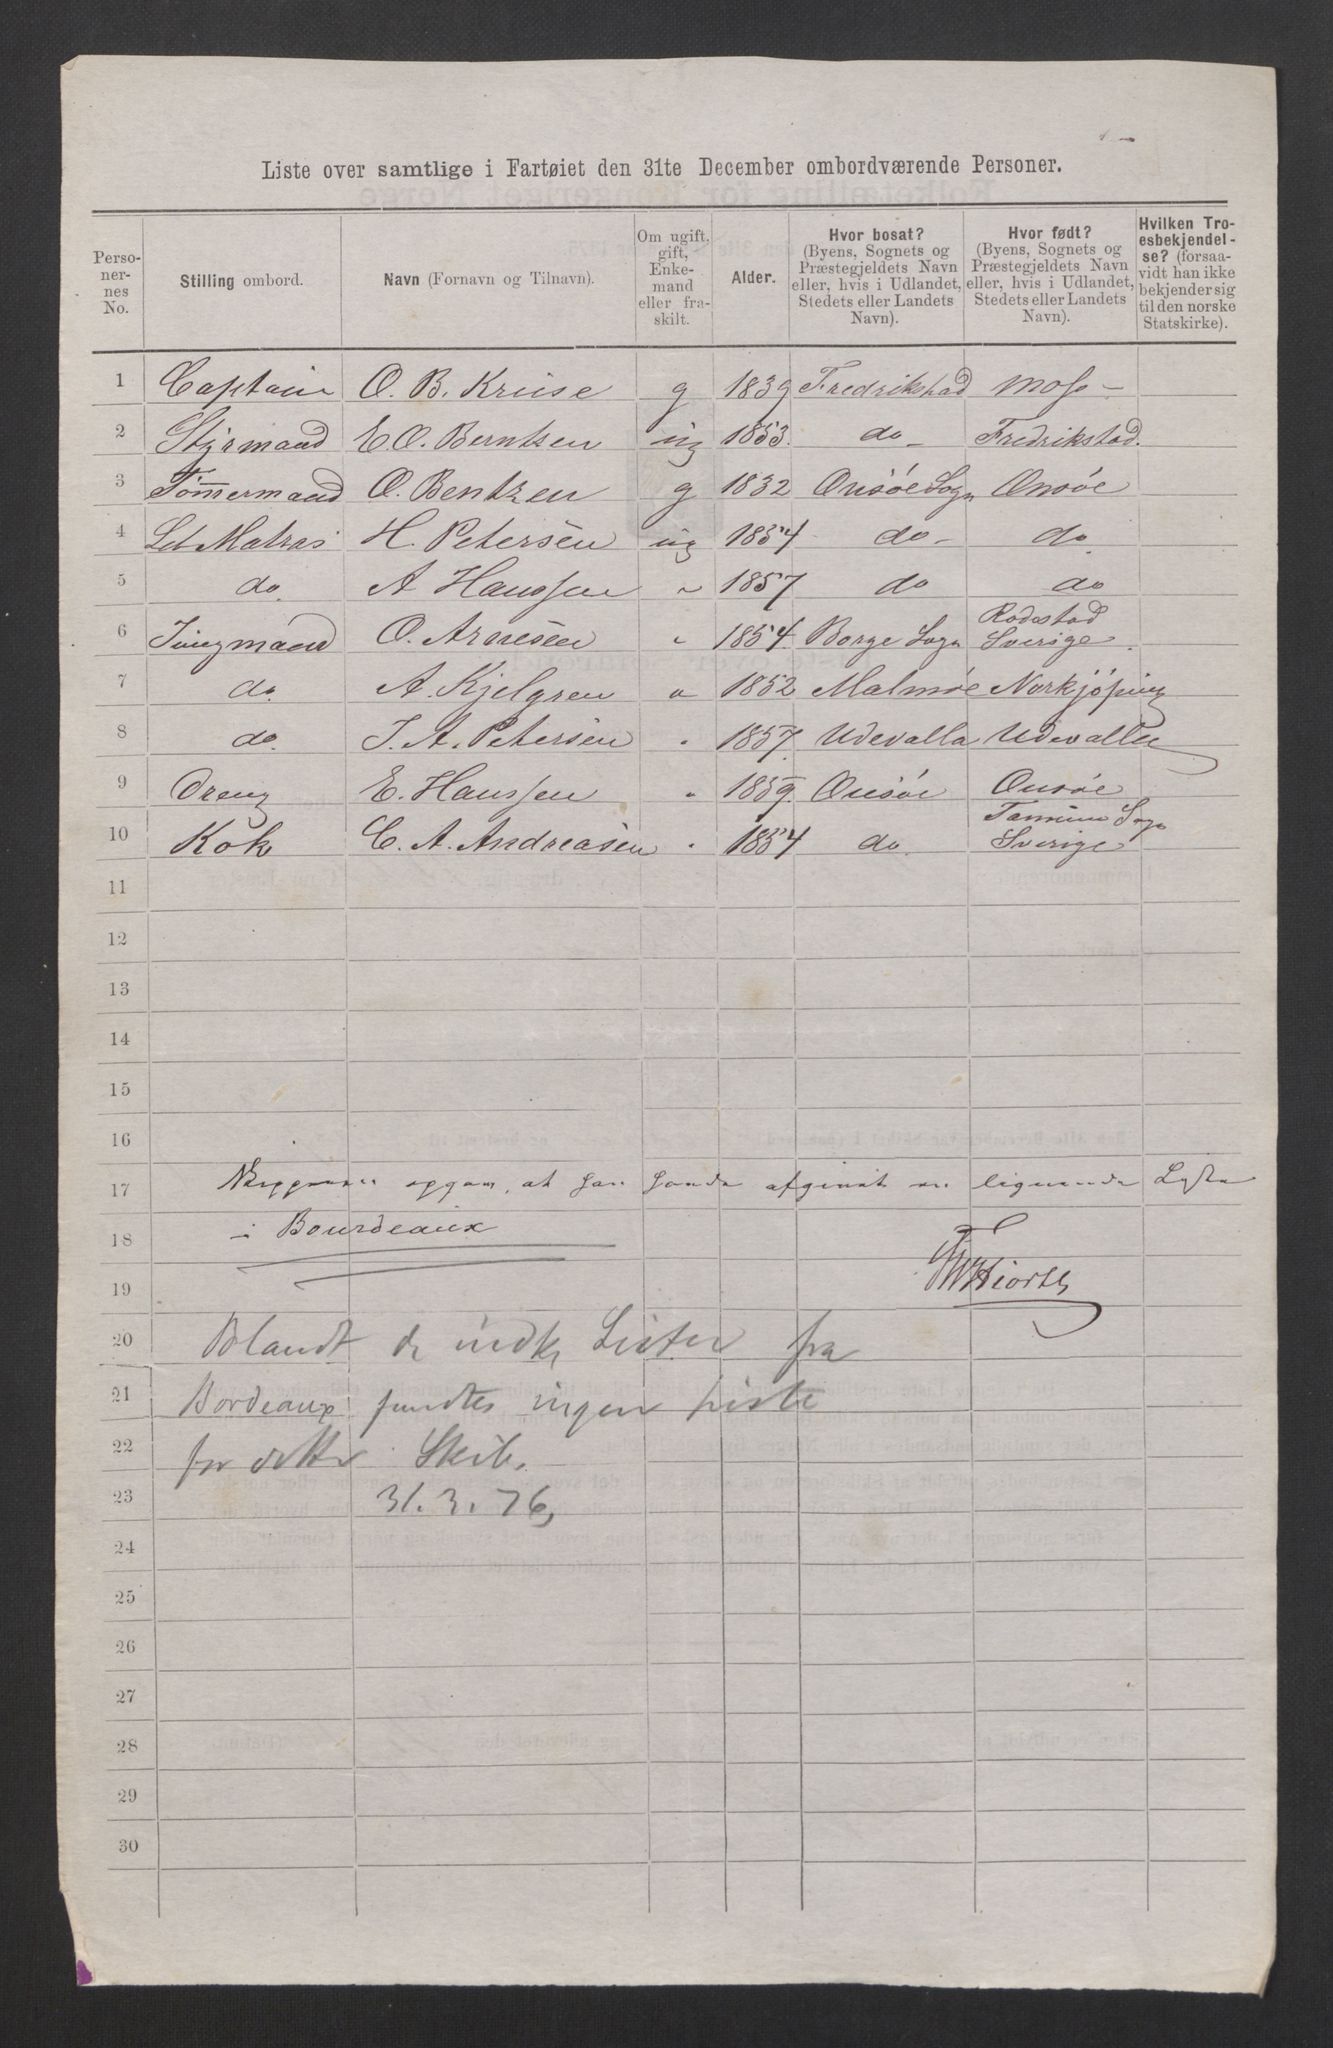 Liste over samtlige i Fartøiet den 31te December ombordværende Personer.
Perso-
ner-
nes
No.
Stilling ombord.
Navn (Fornavn og Tilnavn).
Om ugift,
gift,
Enke-
mand
eller fra-
skilt.
Alder.
Hvor bosat?
(Byens, Sognets og
Præstegjeldets Navn
eller, hvis i Udlandet,
Stedets eller Landets
Navn).
Hvor født?
(Byens, Sognets og
Præstegjeldets Navn
eller, hvis i Udlandet,
Stedets eller Landets
Navn).
Hvilken Tro-
esbekjendel-
se? (forsaa-
vidt han ikke
bekjender sig
til den norske
Statskirke).
1 Captain O. B. Kruse g 1839 Fredrikstad Moss –
2 Styrmand E. O. Berntsen ug 1853. do – Fredrikstad.
3 Tömmermand O. Bentzen g 1832 Onsöe Sogn Onsöe
4 Let Matros H. Petersen ug 1854 do – do
5 do. A Hanssen " 1857 do do
6 Jungmand O. Arnesen " 1854. Borge Sogn Rodestad
Sverige.
7 do. A. Kjelgren " 1852 Malmöe Norkjöping
8 do. J. A. Petersen " 1857. Udevalla Udevalla
9 Dreng E. Hanssen " 1859. Onsöe Onsöe
10 Kok C. A. Andreasen " 1854 do. Tannum Sogn
Sverige
11
12
13
14
15
16
17 Skipperen opgav, at han havde afgivet en lignende Liste
18 i Bourdeaux
Hiorth
19
20 Blandt de indk. Lister fra
21 Bordeaux fandtes ingen Liste
22 for dette Skib.
23 31.3.76,
24
25
26
27
28
29
30